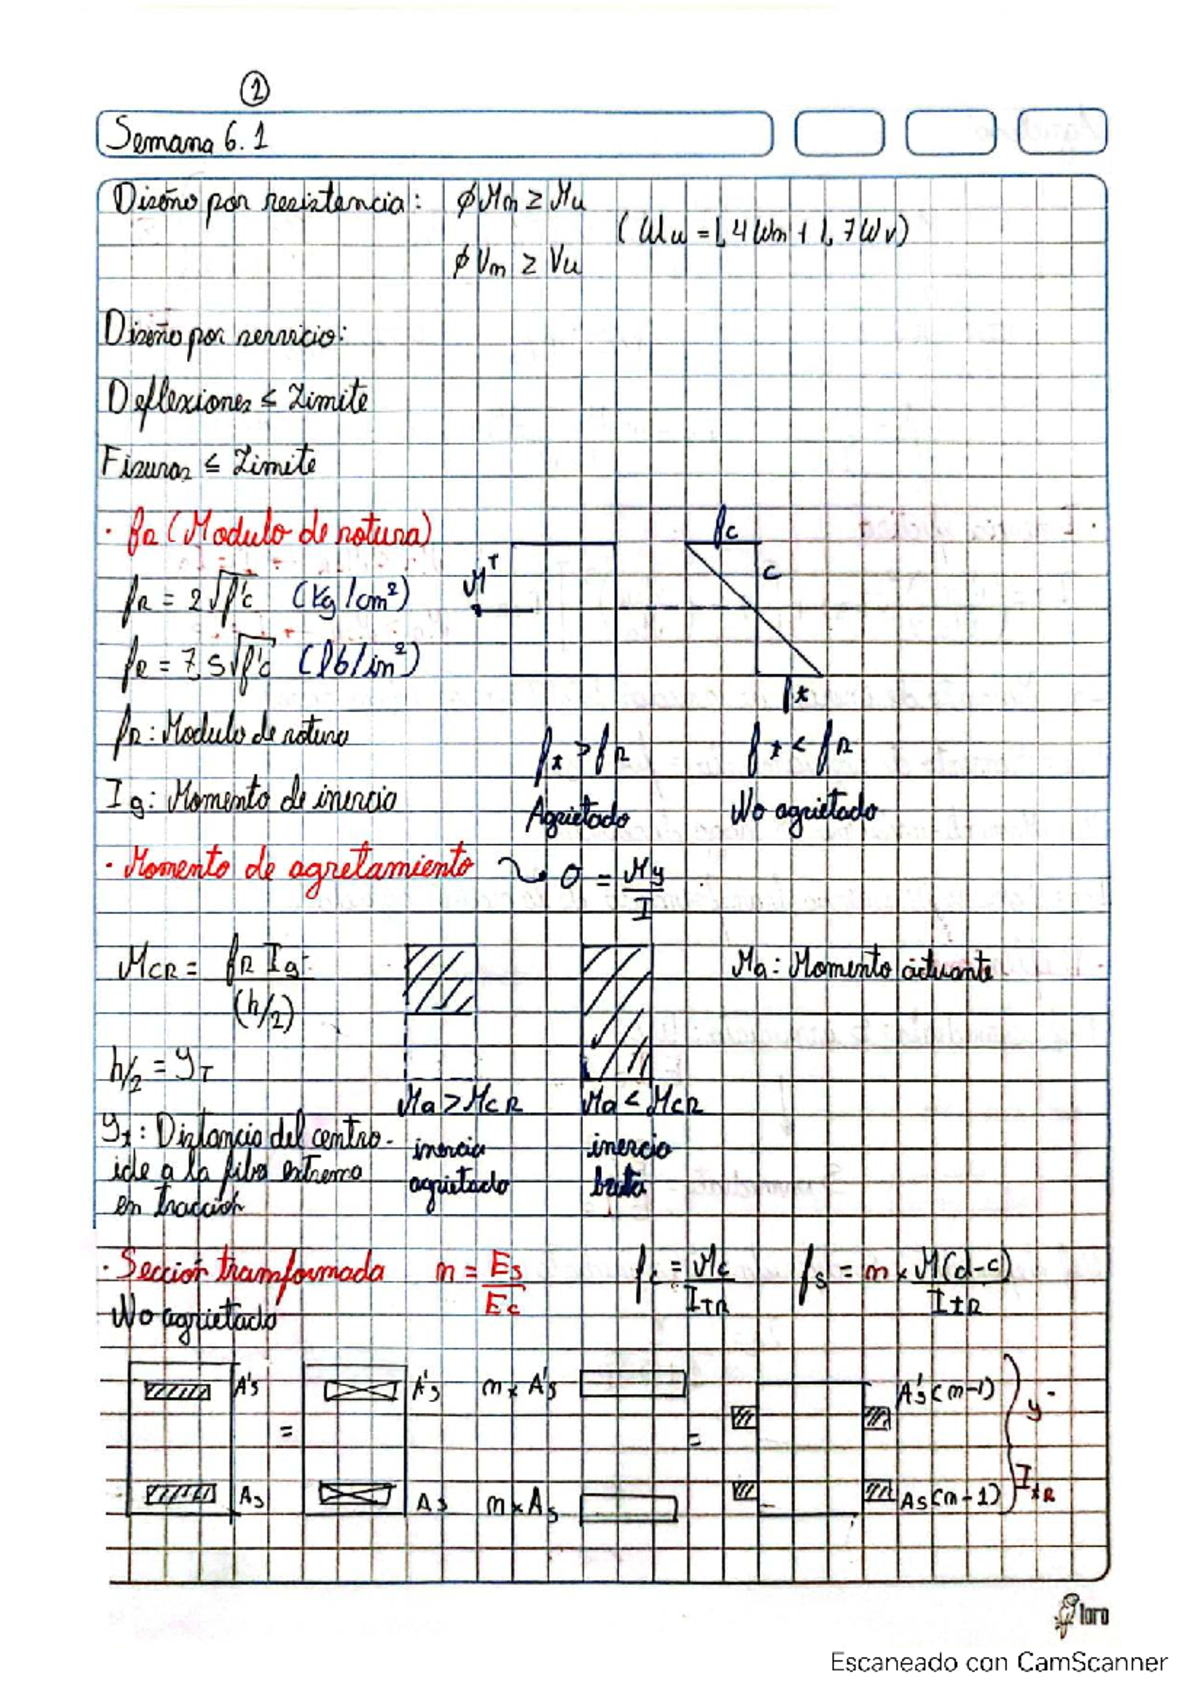 2
Semana 6.1
Diseño por resistencia: ϕMn ≥ Mu
(Wu = 1,4Wm + 1,7Wv)
ϕVn ≥ Vu
Diseño por servicio:
Deflexiones ≤ Limite
Fisuras ≤ Limite
· fR (Modulo de rotura)
fR = 2√f'c (kg/cm²)
fR = 7,5√f'c (lb/in²)
fR: Modulo de rotura
Ig: Momento de inercia
M⁺
fc
c
ft
ft > fR
Agrietado
ft < fR
No agrietado
· Momento de agretamiento
σ = My/I
MCR = fR Ig/(h/2)
h/2 = yT
yt: Distancia del centro-
ide a la fibra extrema
en tracción
Ma > MCR
inercia
agrietado
Ma < MCR
inercia
bruta
Ma: Momento actuante
· Sección transformada n = Es/Ec
fc = Mc/ITR
fs = n x M(d-c)/ItR
No agrietado
A's
As
=
A's
As
n x A's
n x As
=
A's(n-1)
As(n-1)
y
ItR
loro
Escaneado con CamScanner